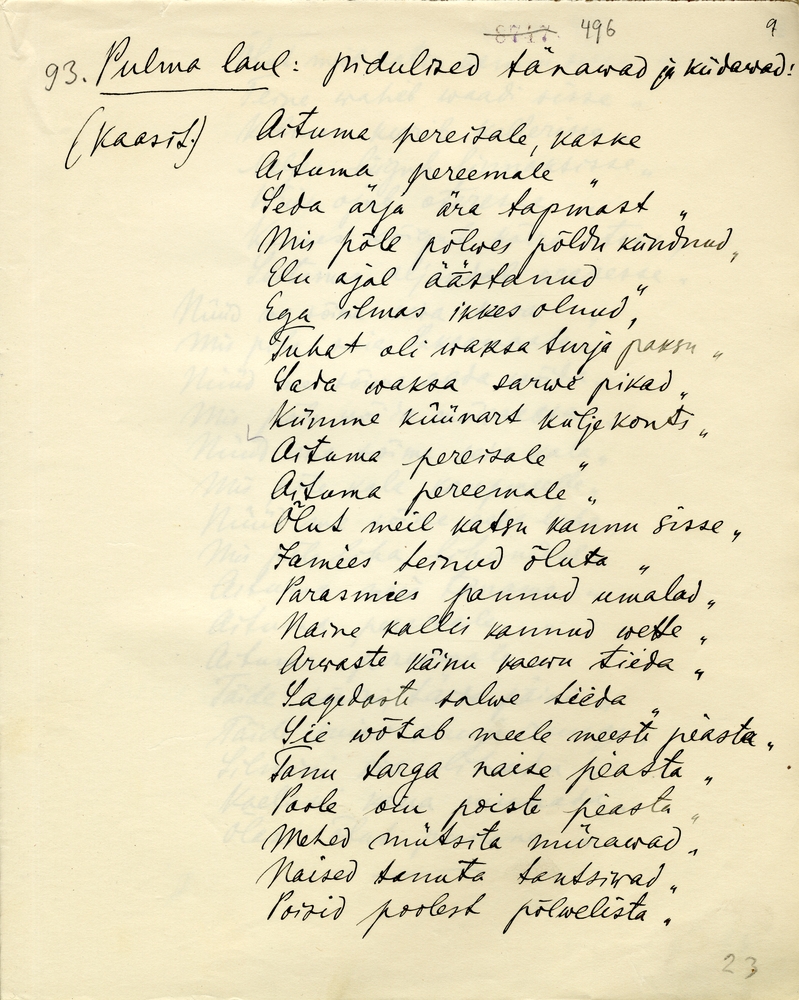 8717 496 9
93. Pulma laul: pidulised tänawad ja kiidawad:
(Kaasit.) Aituma pereisale, kaske
Aituma pereemale „
Seda ärja ära tapmast „
Mis põle põlwes põldu kündnud „
Elu ajal äästanud „
Ega ilmas ikkes olnud „
Tuhat oli waksa turja paksu „
Sada waksa sarwe pikad „
Kümme küünart külje konti „
Aituma pereisale „
Aituma pereemale „
Õlut meil katsu kannu sisse „
Iamies teinud õluta „
Parasmies pannud umalad „
Naine kallis kannud wette „
Arwaste käinu kaewu tiida „
Sagedaste salwe tiida „
Sie wõtab meele meeste pěasta „
Tanu targa naise pěasta „
Poole oiu poiste pěasta „
Mehed mütsita mürawad „
Naised tanuta tantsiwad „
Poisid poolest põlwelista „
23